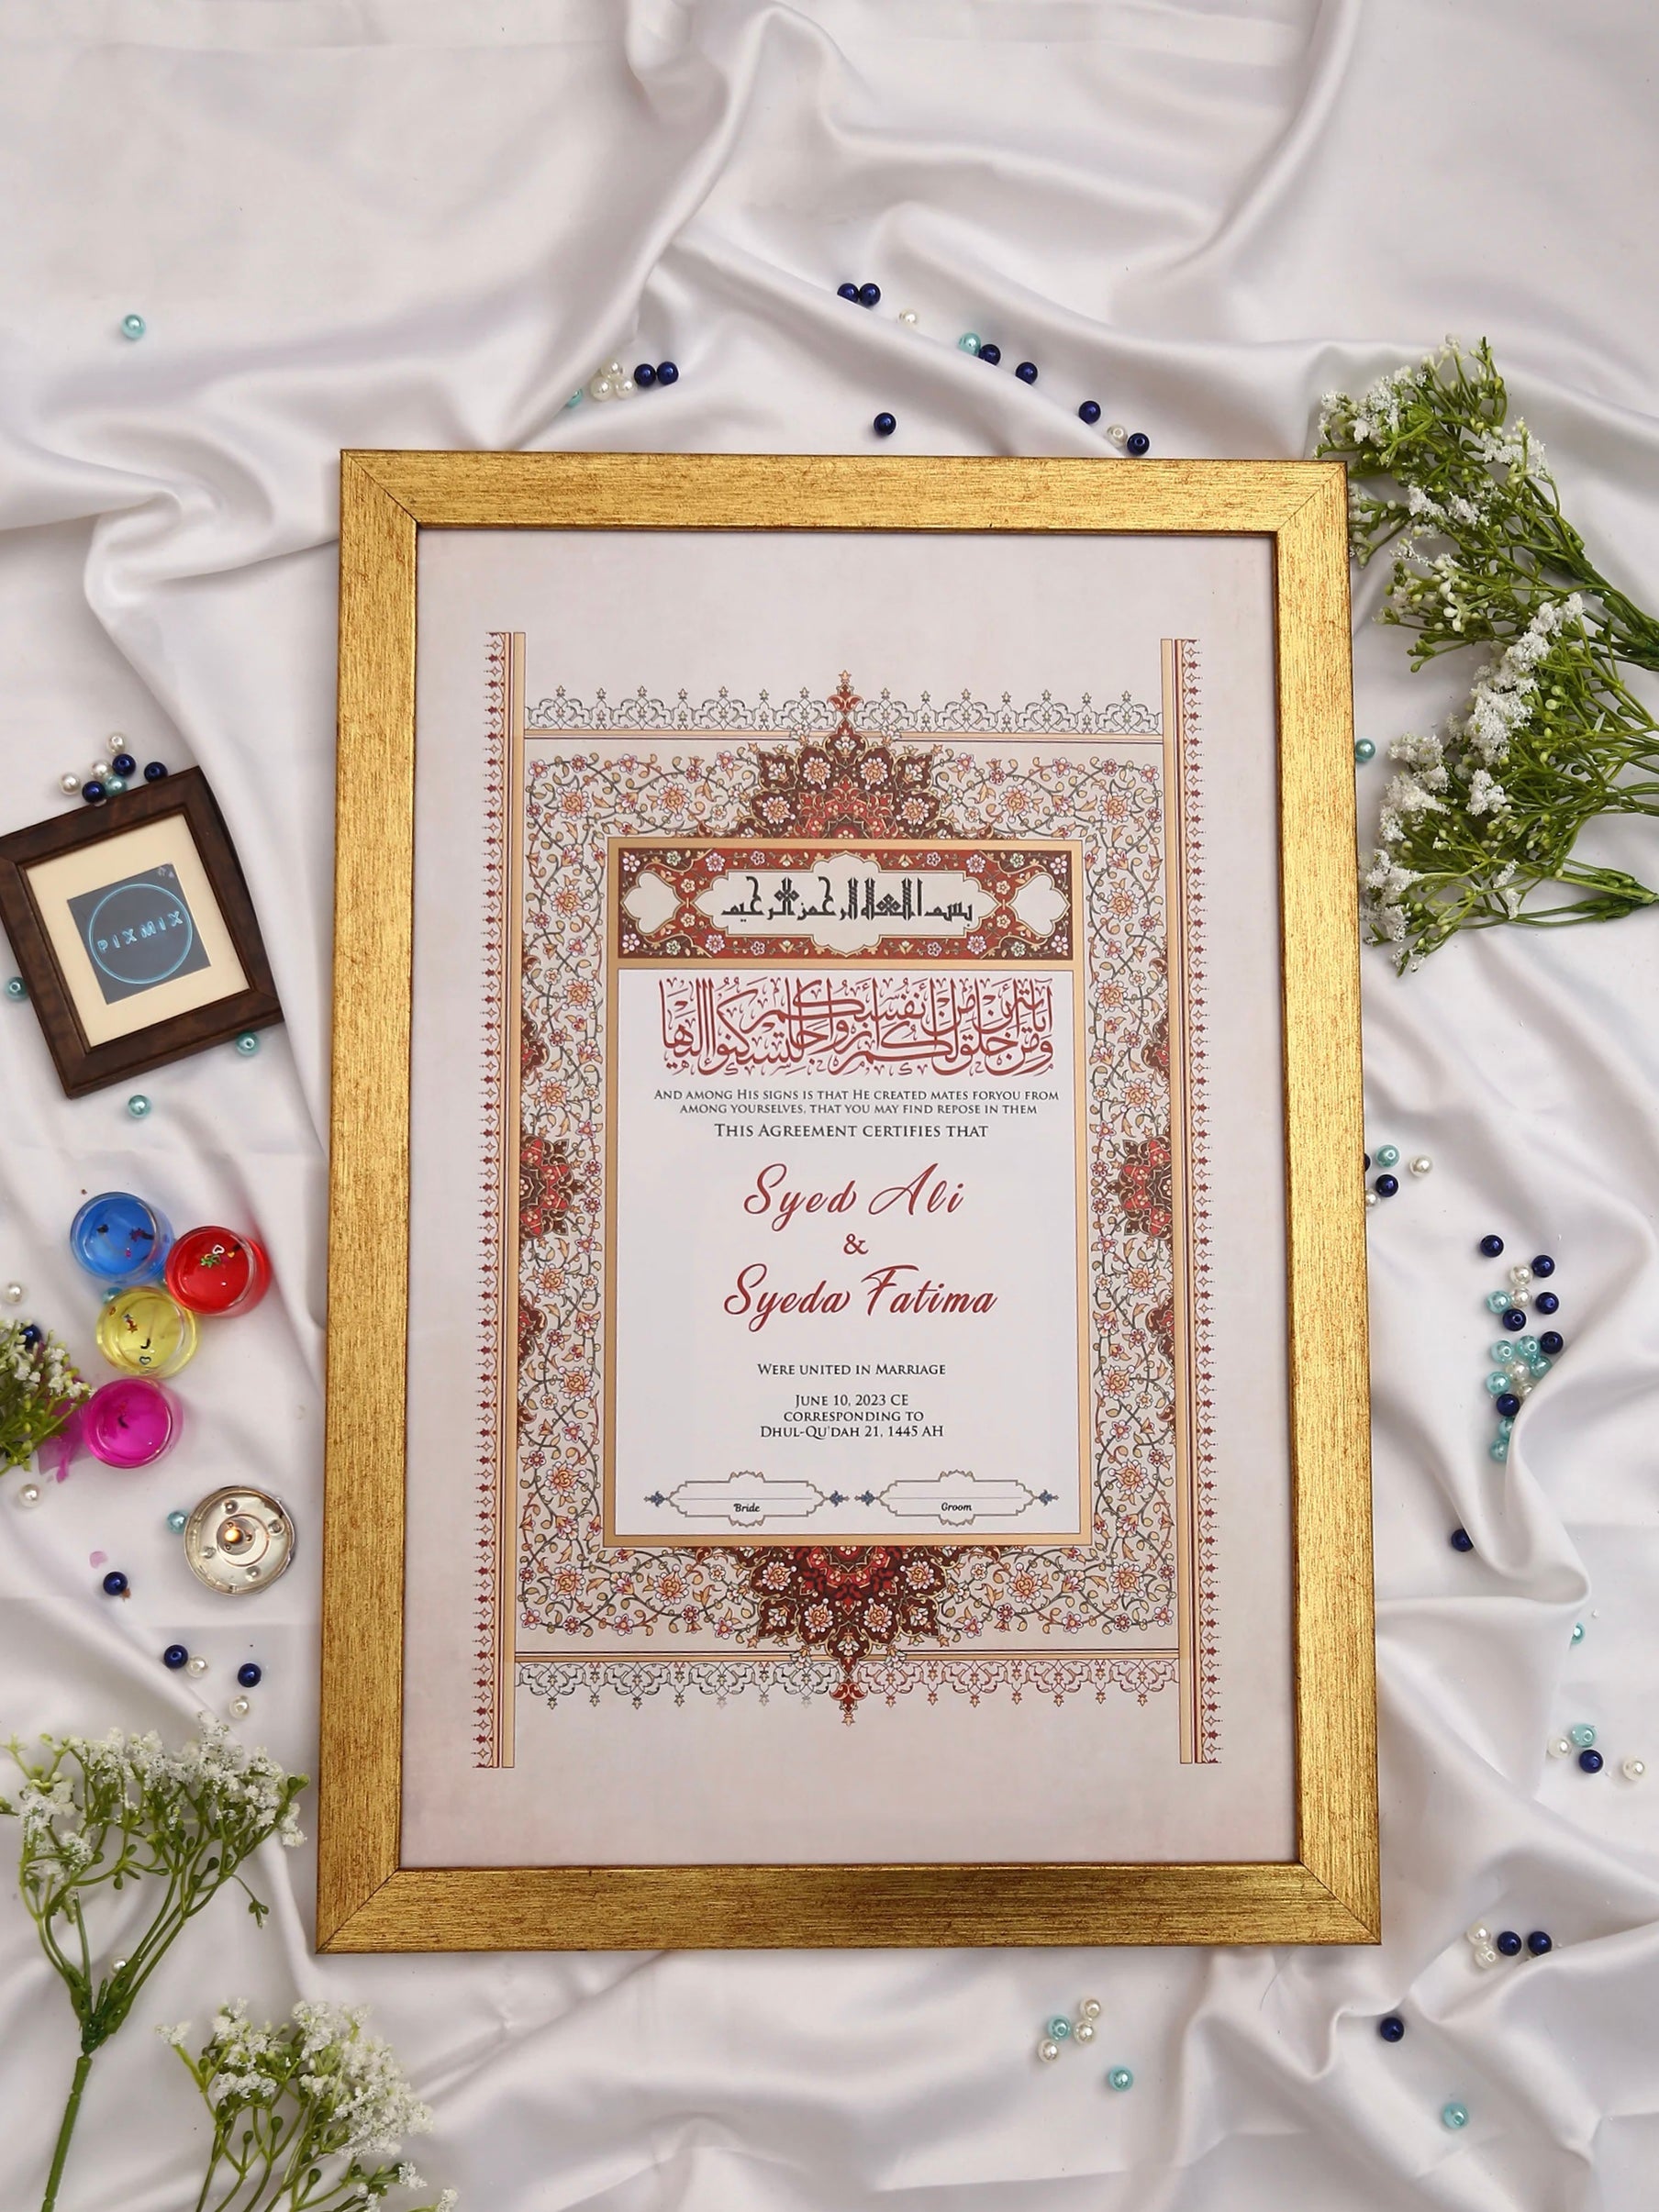 PIXMIX
بسم الله الرحمن الرحيم
ومن آياته أن خلق لكم من أنفسكم أزواجا لتسكنوا إليها
AND AMONG HIS SIGNS IS THAT HE CREATED MATES FORYOU FROM
AMONG YOURSELVES, THAT YOU MAY FIND REPOSE IN THEM
THIS AGREEMENT CERTIFIES THAT
Syed Ali
&
Syeda Fatima
WERE UNITED IN MARRIAGE
JUNE 10, 2023 CE
CORRESPONDING TO
DHUL-QU'DAH 21, 1445 AH
Bride
Groom